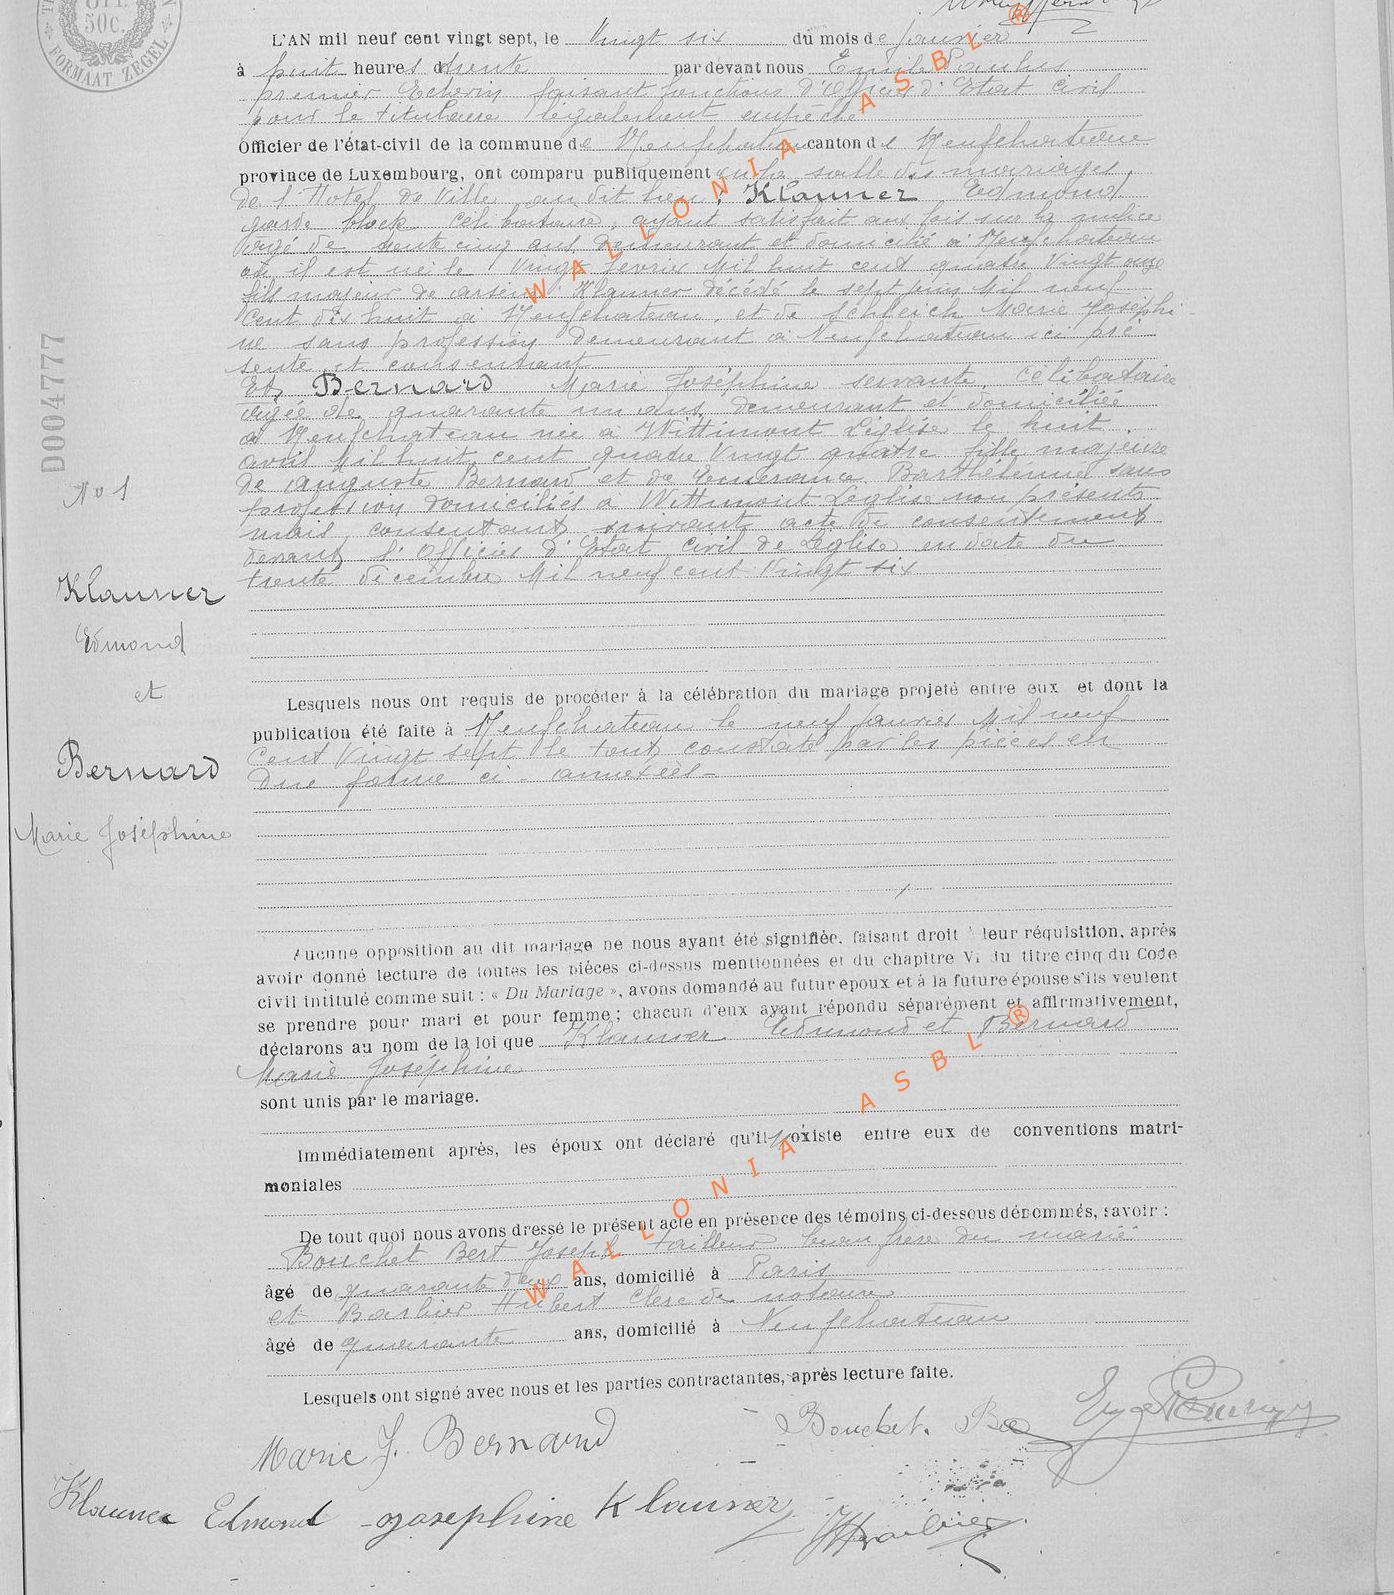 50c.
FORMAAT ZEGEL
L'AN mil neuf cent vingt sept, le Vingt six du mois de Janvier
à huit heures trente par devant nous Emile Paulus
premier Echevin faisant fonctions d'Officier d'Etat Civil
pour le titulaire légalement empêché
Officier de l'état-civil de la commune de Neufchateau canton de Neufchateau
province de Luxembourg, ont comparu publiquement en la salle des mariages
de l'Hotel de Ville au dit lieu : Klauner Edmond,
garde block célibataire, ayant satisfait aux lois sur la milice
agé de trente cinq ans, demeurant et domicilié à Neufchateau
où il est né le Vingt février Mil huit cent quatre Vingt onze
fils majeur de Arsène Klauner décédé le sept juin Mil neuf
Cent dix huit à Neufchateau, et de Schleich Marie Joséphi-
ne sans profession demeurant à Neufchateau ici pré
sente et consentant
Et, Bernard Marie Joséphine servante, célibataire
agée de quarante un ans, demeurant et domiciliée
à Neufchateau née à Wittimont Léglise le huit
avril Mil huit cent quatre Vingt quatre fille majeure
de Auguste Bernard et de Barthélemie sans
profession domiciliés à Wittimont Léglise non présents
mais consentant suivant acte de consentement
devant l'Officier d'Etat Civil de Léglise en date du
trente décembre Mil neuf cent Vingt six
D004777
No 1
Klauner
Edmond
et
Bernard
Marie Joséphine
Lesquels nous ont requis de procéder à la célébration du mariage projeté entre eux et dont la
publication été faite à Neufchateau le neuf Janvier Mil neuf
Cent Vingt sept le tout constaté par les pièces en
due forme ci-annexées-
Aucune opposition au dit mariage ne nous ayant été signifiée, faisant droit à leur réquisition, après
avoir donné lecture de toutes les pièces ci-dessus mentionnées et du chapitre VI du titre cinq du Code
civil intitulé comme suit : « Du Mariage », avons domandé au futur époux et à la future épouse s'ils veulent
se prendre pour mari et pour femme ; chacun d'eux ayant répondu séparément et affirmativement,
déclarons au nom de la loi que Klauner Edmond et Bernard
Marie Joséphine
sont unis par le mariage.
Immédiatement après, les époux ont déclaré qu'il existe entre eux de conventions matri-
moniales
De tout quoi nous avons dressé le présent acte en présence des témoins ci-dessous dénommés, savoir :
Bouchet Bert Joseph tailleur beau frère du marié
âgé de quarante deux ans, domicilié à Paris
et Barbier Hubert clerc de notaire
âgé de quarante ans, domicilié à Neufchateau
Lesquels ont signé avec nous et les parties contractantes, après lecture faite.
Marie J. Bernard
Bouchet.
Klauner Edmond Josephine Klauner
WALLONIA ASBL ®
WALLONIA ASBL ®